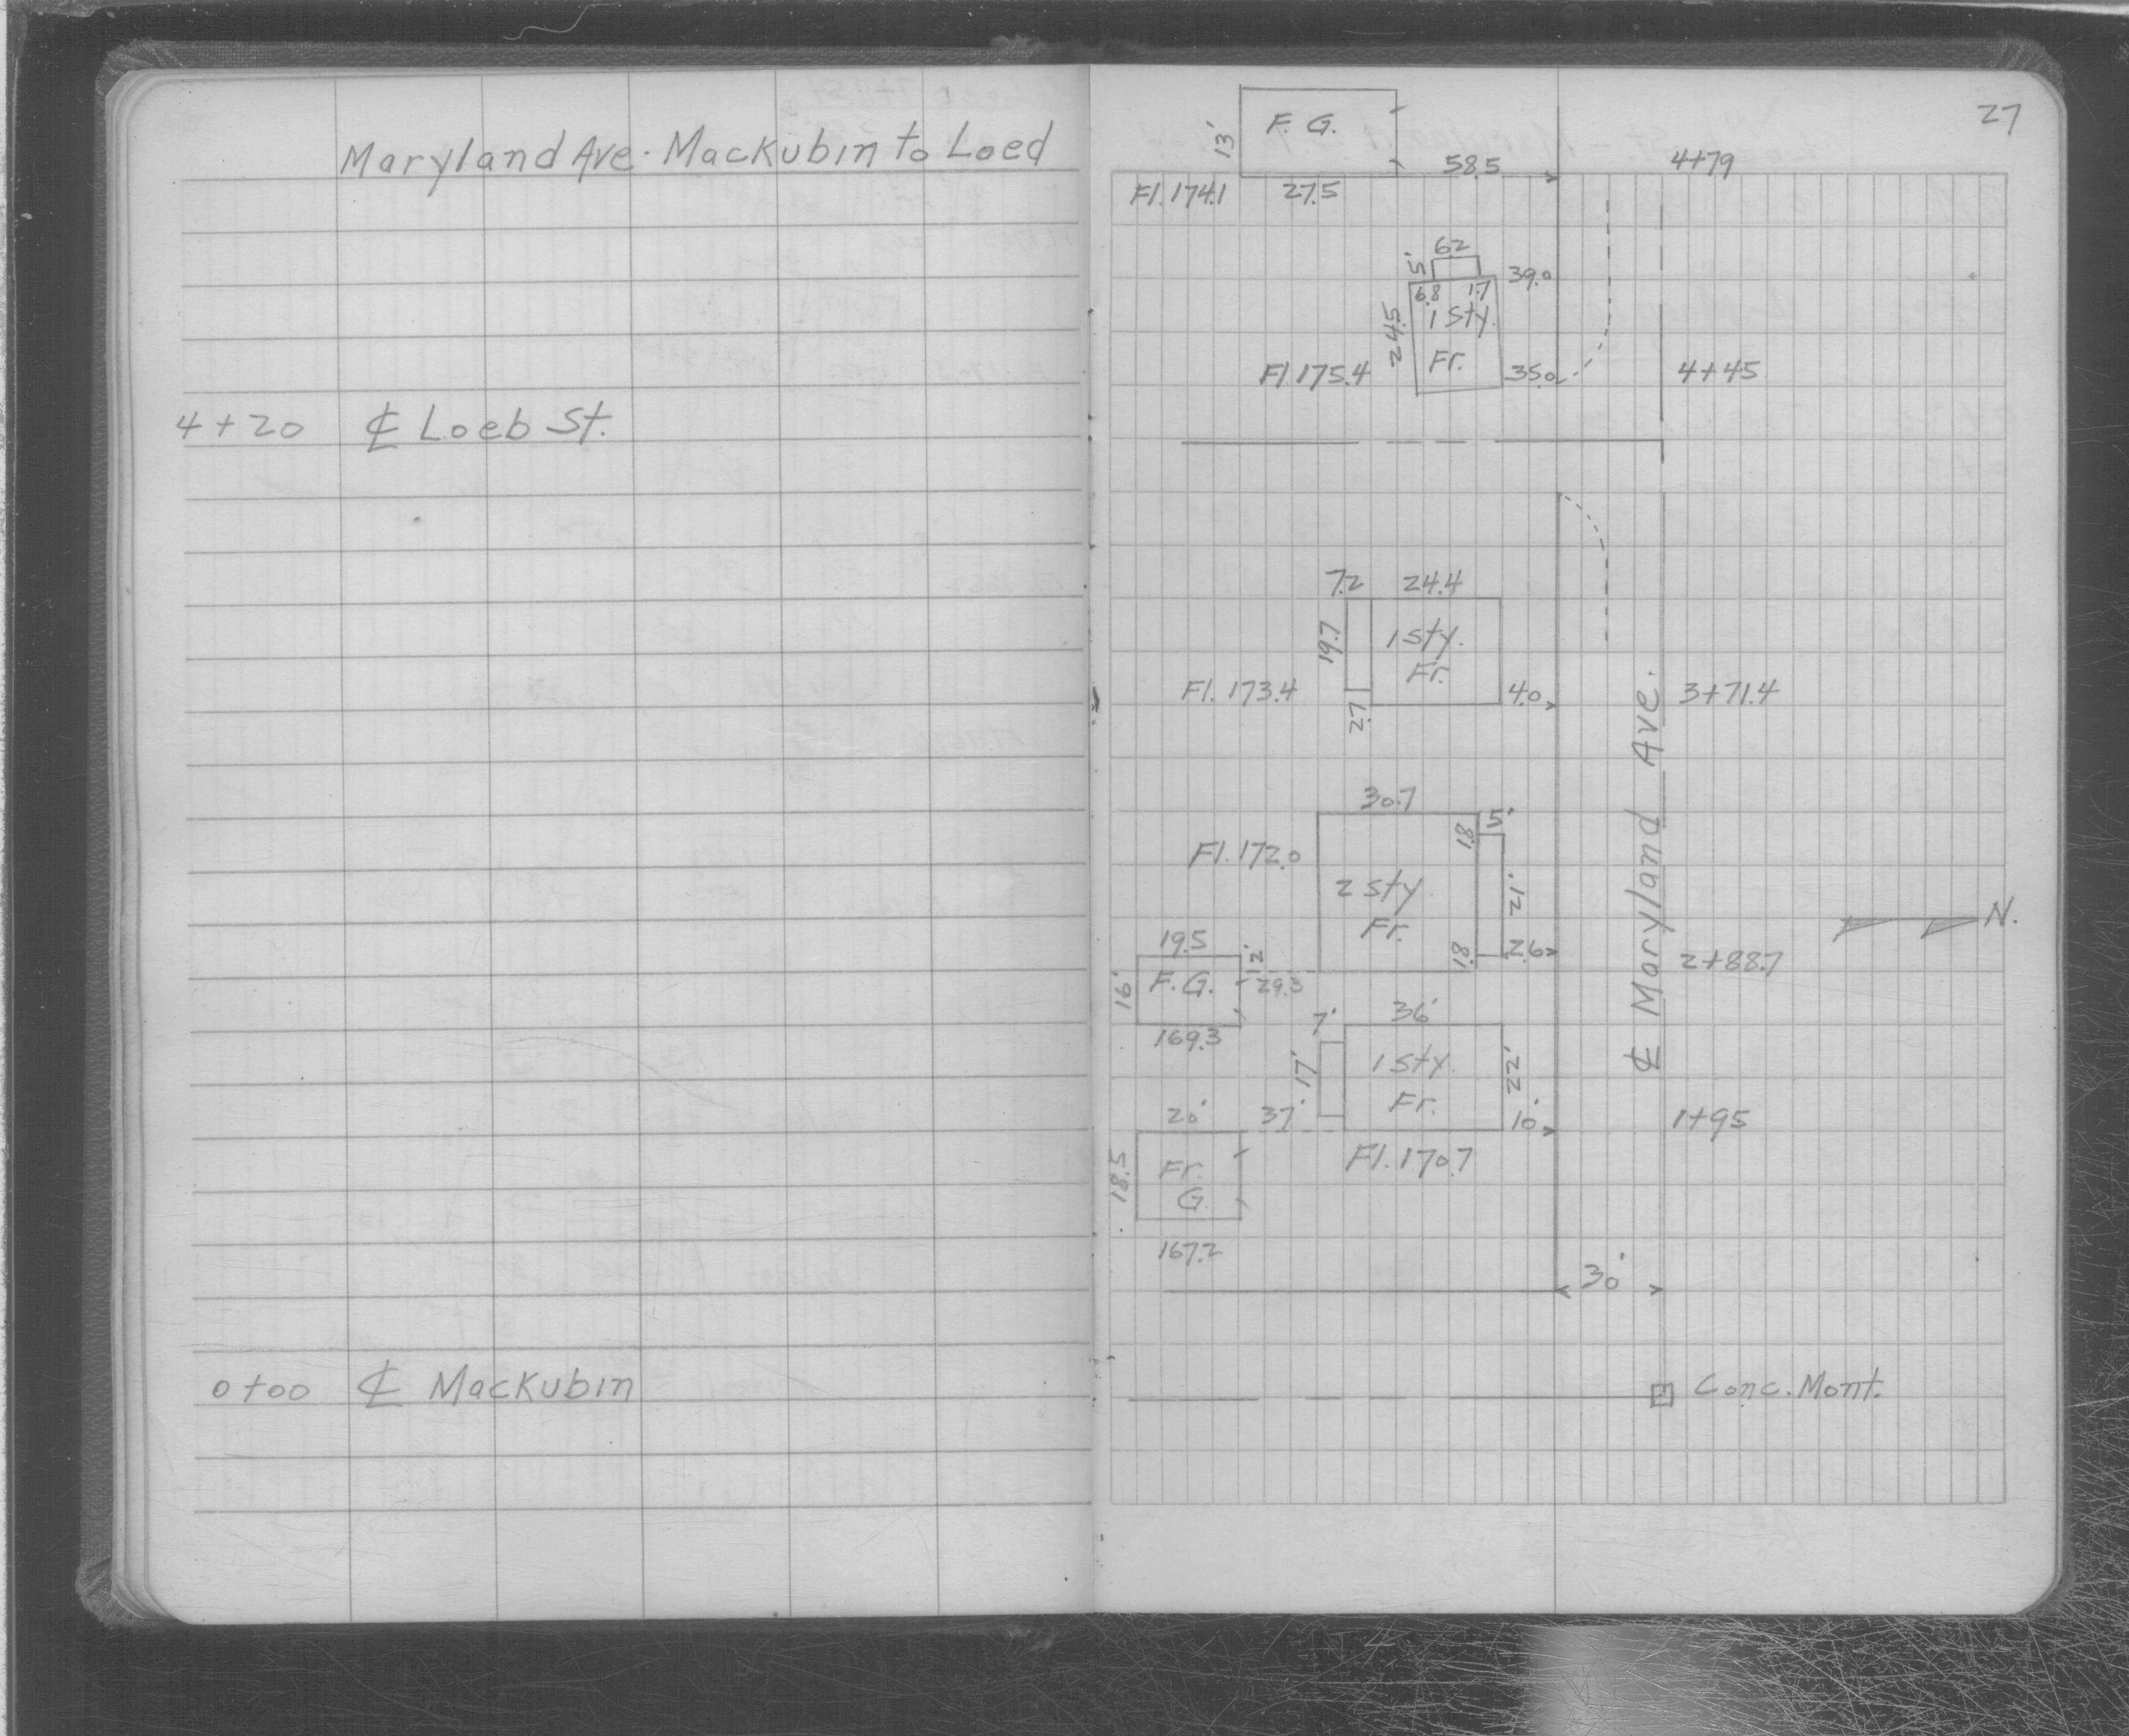 Maryland Ave. Mackubin to Loed
4+20 ℄ Loeb St.
0+00 ℄ Mackubin
27
F. G.
13'
58.5
4+79
Fl. 174.1
27.5
6.2
5'
39.0
6.8 1.7
1 Sty.
24.5
Fr.
Fl 175.4
35.0
4+45
7.2 24.4
1 sty.
19.7
Fr.
Fl. 173.4
4.0
3+71.4
2.7
℄ Maryland Ave.
30.7
5'
1.8
Fl. 172.0
2 sty
21'
Fr.
N.
19.5
2'
1.8
2.6
2+88.7
F. G.
29.3
16'
36'
7'
169.3
1 sty.
17'
22'
Fr.
20'
37'
10'
1+95
Fl. 170.7
18.5
Fr.
G.
167.2
30'
Conc. Mont.